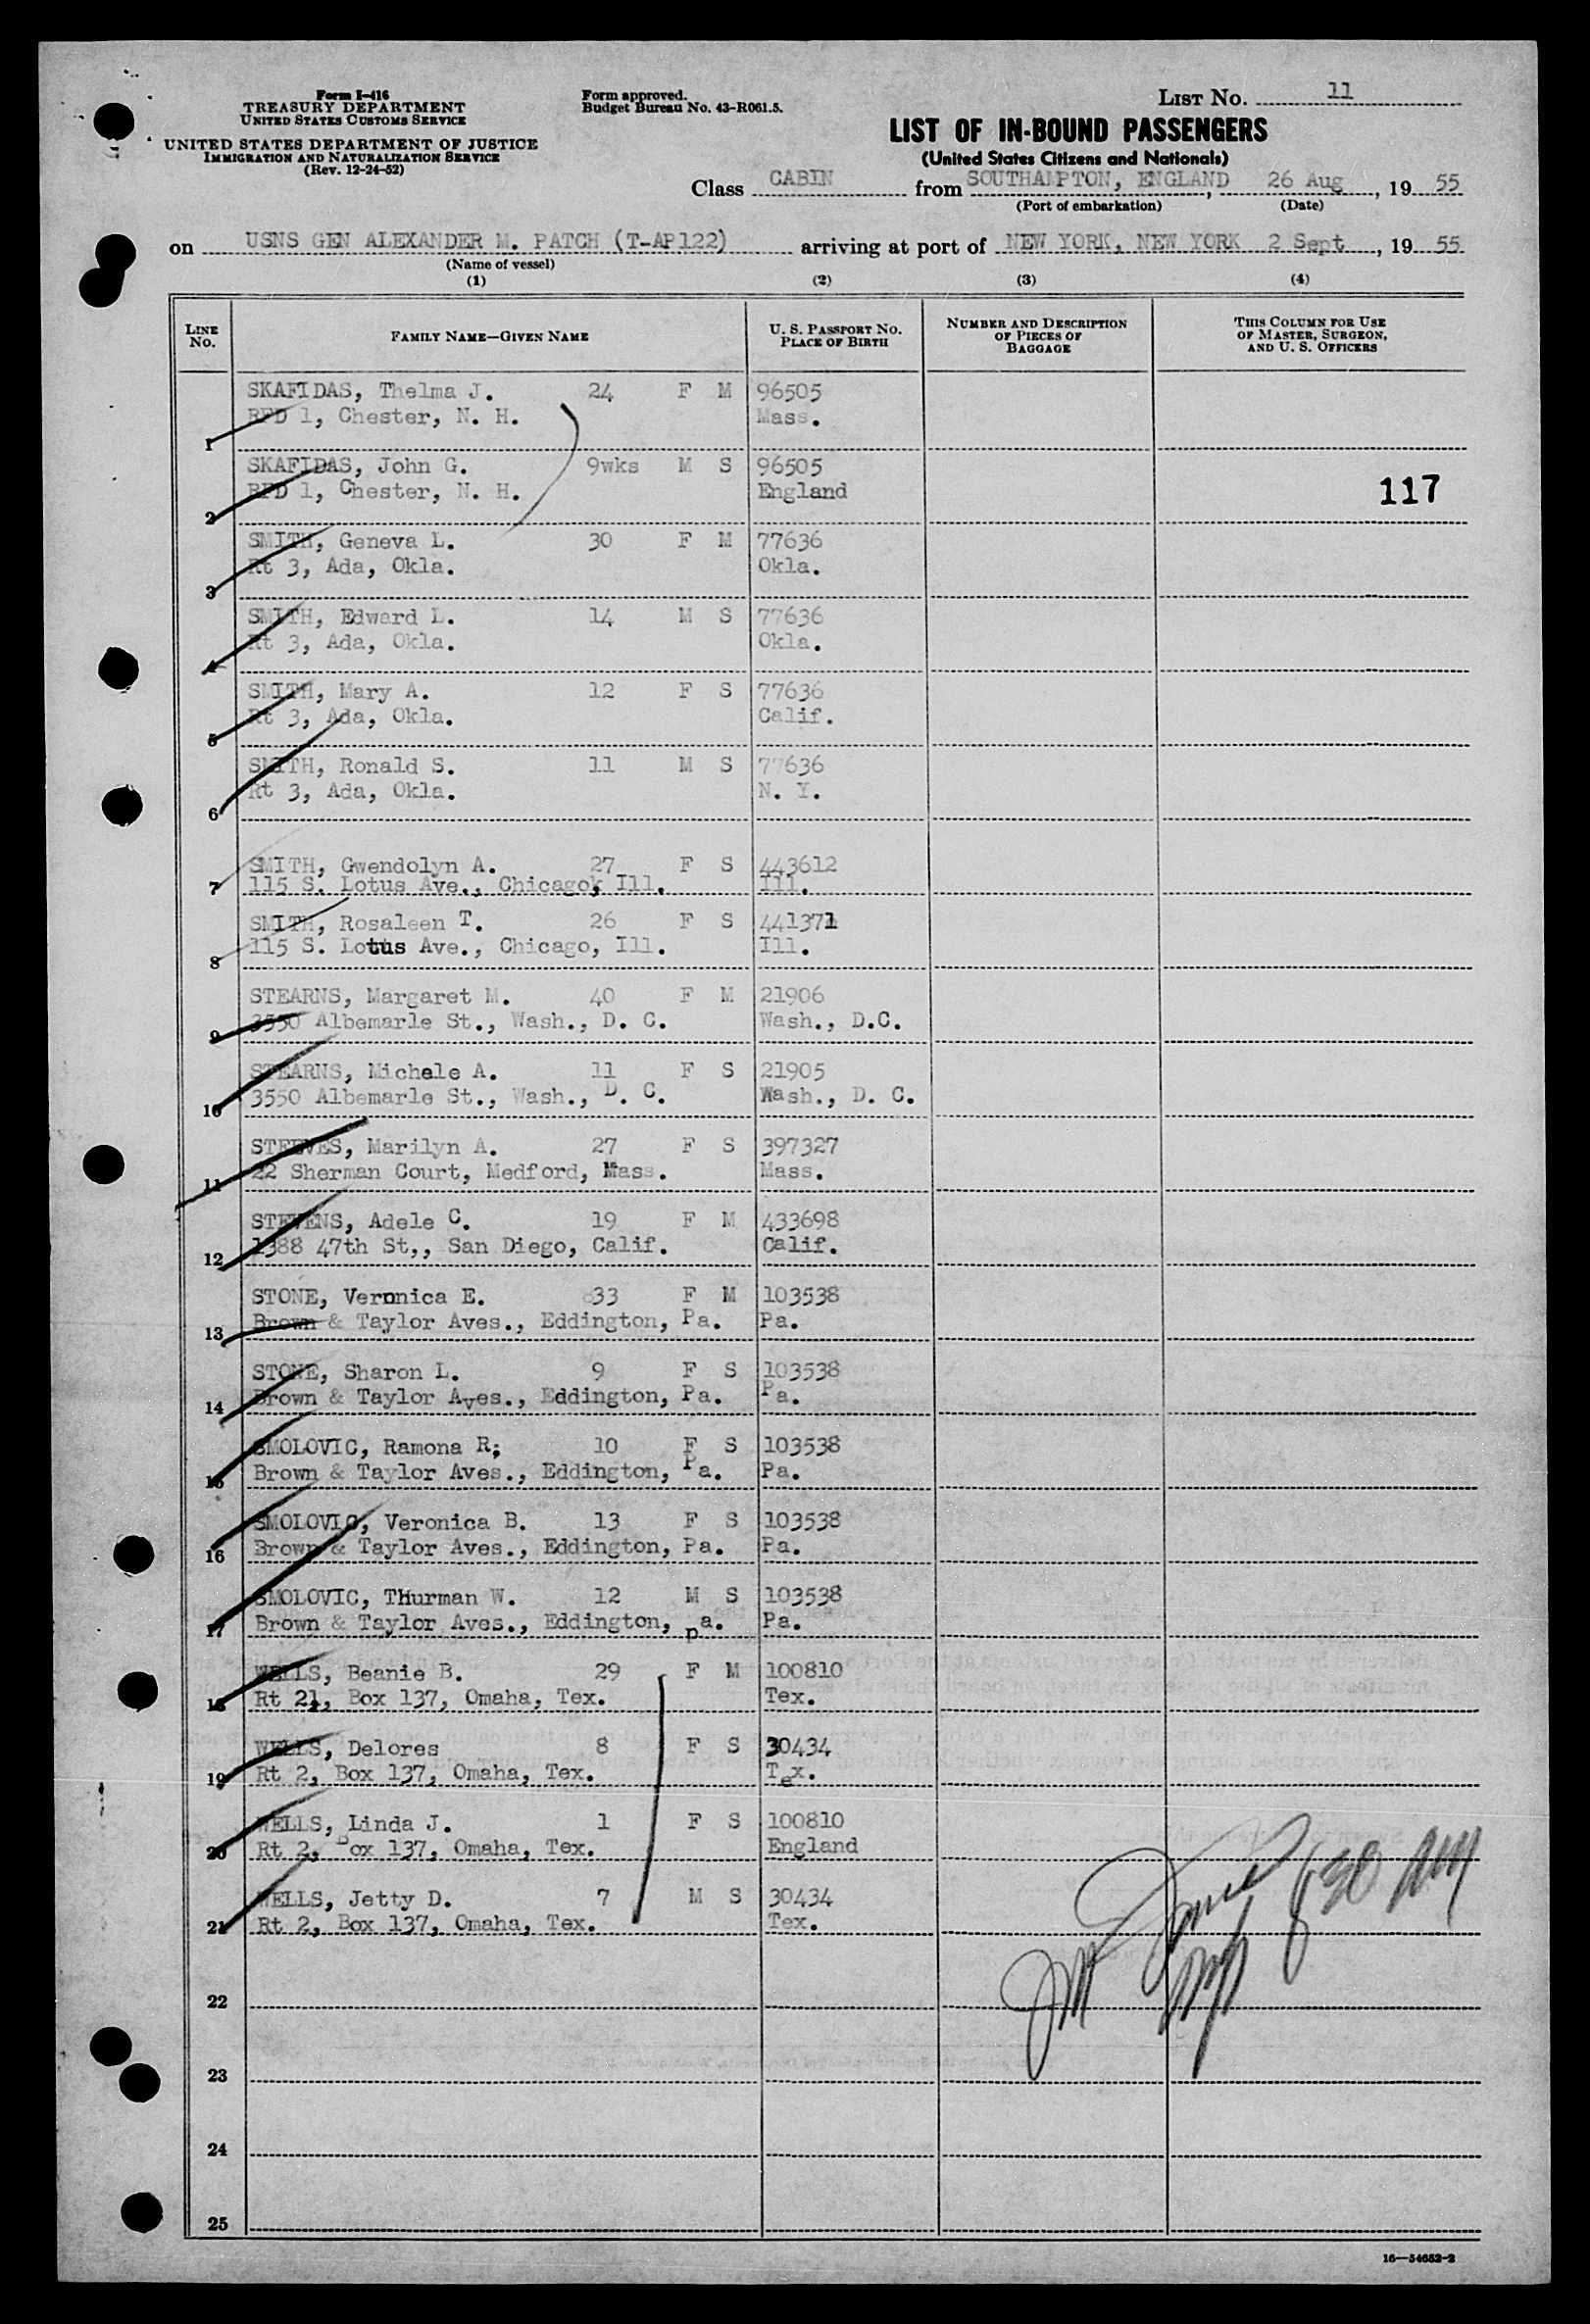 Form I-416
TREASURY DEPARTMENT
UNITED STATES CUSTOMS SERVICE
UNITED STATES DEPARTMENT OF JUSTICE
IMMIGRATION AND NATURALIZATION SERVICE
(Rev. 12-24-52)
Form approved.
Budget Bureau No. 43-R061.5.
LIST No. 11
LIST OF IN-BOUND PASSENGERS
(United States Citizens and Nationals)
Class CABIN from SOUTHAMPTON, ENGLAND, 26 Aug, 19 55
(Port of embarkation) (Date)
on USNS GEN ALEXANDER M. PATCH (T-AP122) arriving at port of NEW YORK, NEW YORK 2 Sept, 19 55
(Name of vessel)
(1) (2) (3) (4)
LINE No. FAMILY NAME—GIVEN NAME U. S. PASSPORT No. PLACE OF BIRTH NUMBER AND DESCRIPTION OF PIECES OF BAGGAGE THIS COLUMN FOR USE OF MASTER, SURGEON, AND U. S. OFFICERS
SKAFIDAS, Thelma J. 24 F M 96505
1 RFD 1, Chester, N. H. Mass.
SKAFIDAS, John G. 9wks M S 96505
2 RFD 1, Chester, N. H. England
117
SMITH, Geneva L. 30 F M 77636
3 Rt 3, Ada, Okla. Okla.
SMITH, Edward L. 14 M S 77636
4 Rt 3, Ada, Okla. Okla.
SMITH, Mary A. 12 F S 77636
5 Rt 3, Ada, Okla. Calif.
SMITH, Ronald S. 11 M S 77636
6 Rt 3, Ada, Okla. N. Y.
SMITH, Gwendolyn A. 27 F S 443612
7 115 S. Lotus Ave., Chicago, Ill. Ill.
SMITH, Rosaleen T. 26 F S 441371
8 115 S. Lotus Ave., Chicago, Ill. Ill.
STEARNS, Margaret M. 40 F M 21906
9 3550 Albemarle St., Wash., D. C. Wash., D.C.
STEARNS, Michele A. 11 F S 21905
10 3550 Albemarle St., Wash., D. C. Wash., D. C.
STEEVES, Marilyn A. 27 F S 397327
11 22 Sherman Court, Medford, Mass. Mass.
STEVENS, Adele C. 19 F M 433698
12 1388 47th St,, San Diego, Calif. Calif.
STONE, Veronica E. 33 F M 103538
13 Brown & Taylor Aves., Eddington, Pa. Pa.
STONE, Sharon L. 9 F S 103538
14 Brown & Taylor Aves., Eddington, Pa. Pa.
SMOLOVIC, Ramona R; 10 F S 103538
15 Brown & Taylor Aves., Eddington, Pa. Pa.
SMOLOVIC, Veronica B. 13 F S 103538
16 Brown & Taylor Aves., Eddington, Pa. Pa.
SMOLOVIC, THurman W. 12 M S 103538
17 Brown & Taylor Aves., Eddington, pa. Pa.
WELLS, Beanie B. 29 F M 100810
18 Rt 21, Box 137, Omaha, Tex. Tex.
WELLS, Delores 8 F S 30434
19 Rt 2, Box 137, Omaha, Tex. Tex.
WELLS, Linda J. 1 F S 100810
20 Rt 2, Box 137, Omaha, Tex. England
WELLS, Jetty D. 7 M S 30434
21 Rt 2, Box 137, Omaha, Tex. Tex.
830 AM
22
23
24
25
16—54652-2